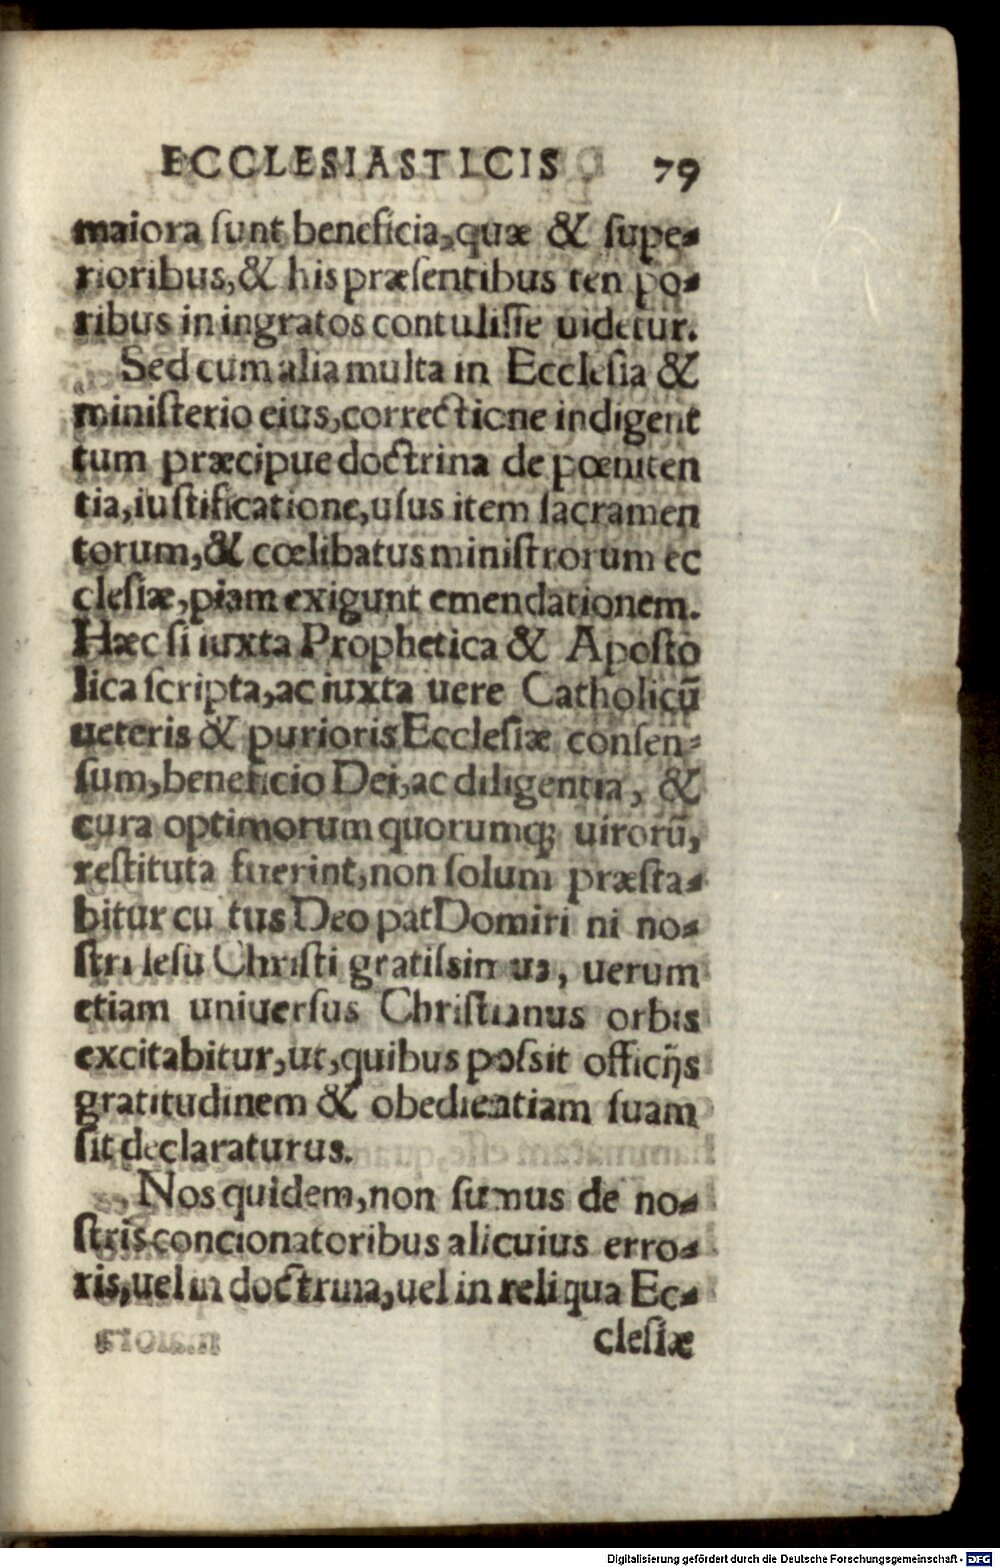 ECCLESIASTICIS 79
maiora ſunt beneficia, quæ & ſupe-
rioribus, & his præſentibus ten po-
ribus in ingratos contuliſſe uidetur.
Sed cum alia multa in Eccleſia &
miniſterio eius, correctione indigent
tum præcipue doctrina de pœniten
tia, iuſtificatione, uſus item ſacramen
torum, & cœlibatus miniſtrorum ec
cleſiæ, piam exigunt emendationem.
Hæc ſi iuxta Prophetica & Apoſto
lica ſcripta, ac iuxta uere Catholicū
ueteris & purioris Eccleſiæ conſen-
ſum, beneficio Dei, ac diligentia, &
cura optimorum quorumq; uirorū,
reſtituta fuerint, non ſolum præſta-
bitur cu tus Deo pat Domiri ni no-
ſtri Ieſu Chriſti gratiſsim us, uerum
etiam uniuerſus Chriſtianus orbis
excitabitur, ut, quibus poſsit officijs
gratitudinem & obedientiam ſuam
ſit declaraturus.
Nos quidem, non ſumus de no-
ſtris concionatoribus alicuius erro-
ris, uel in doctrina, uel in reliqua Ec-
cleſiæ
Digitalisierung gefördert durch die Deutsche Forschungsgemeinschaft - DFG